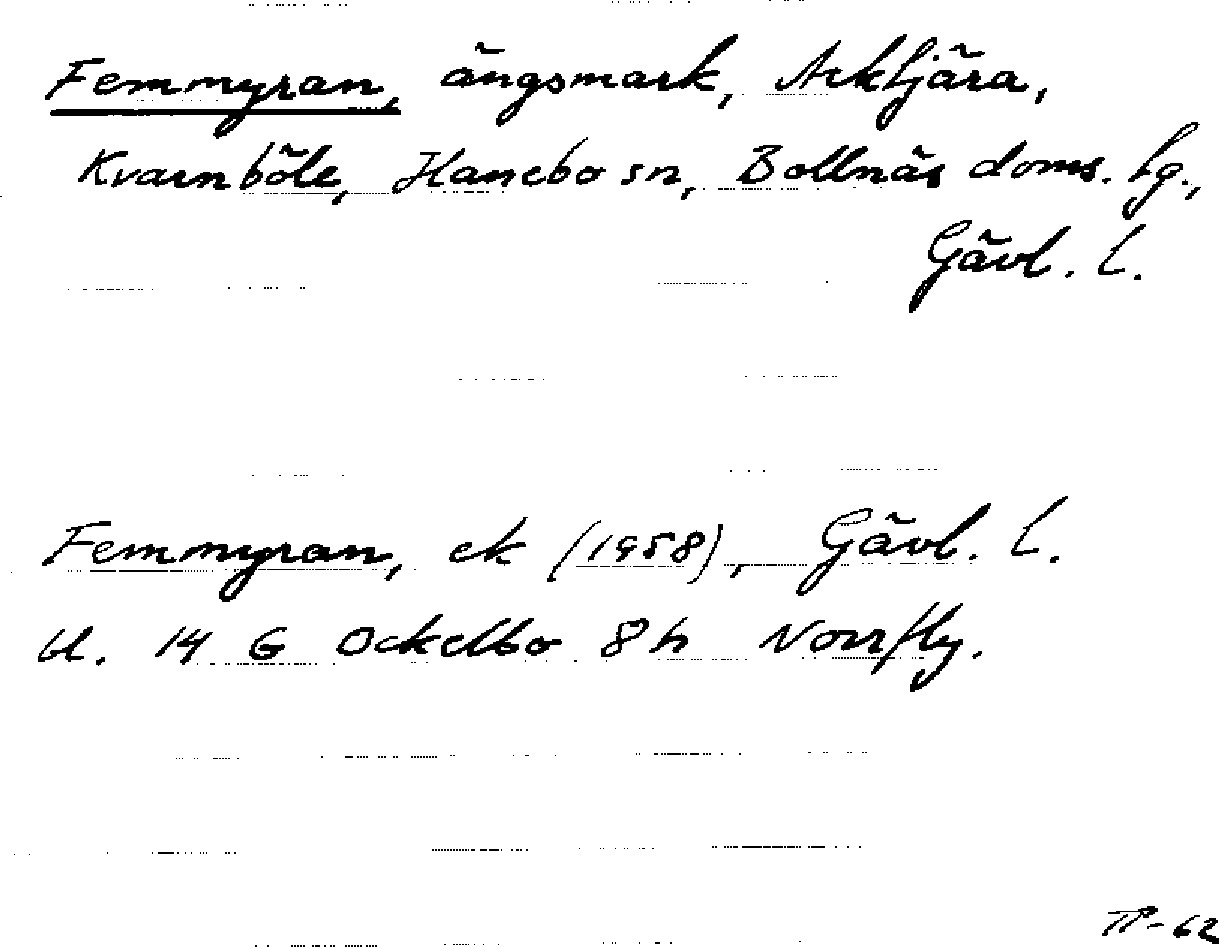 Femmyran, ängsmark, Arktjära,
Kvarnböle, Hanebo sn, Bollnäs doms. hg.,
Gävl. l.
Femmyran, ek (1958), Gävl. l.
Bl. 14 G Ockelbo 8 h Norrfly.
TP-62